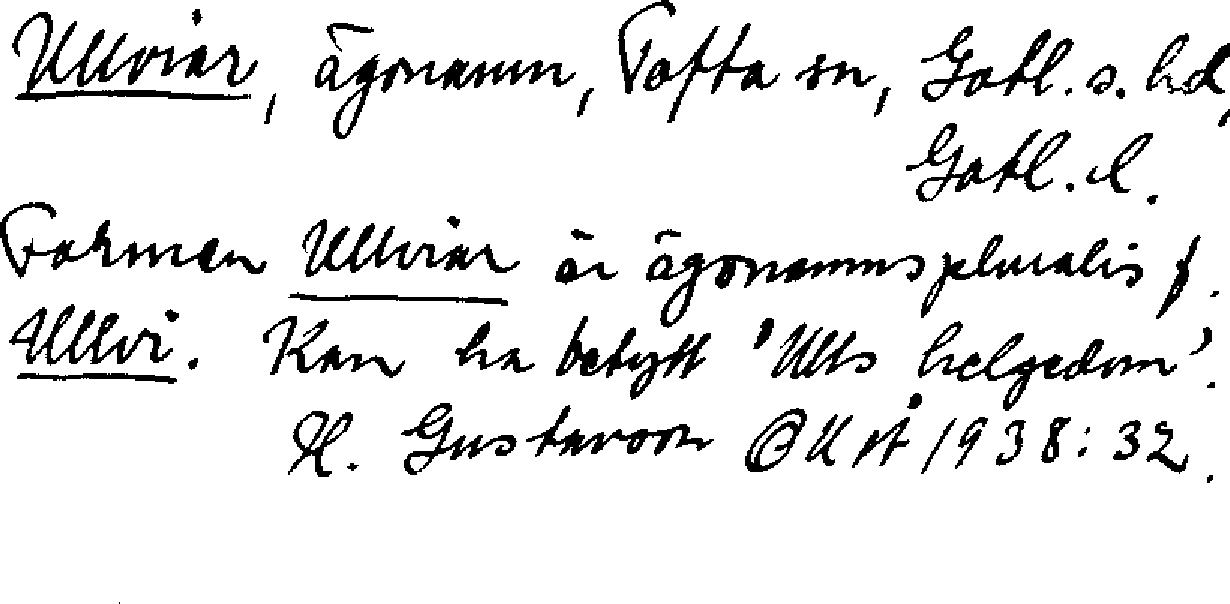 Ullviar, ägonamn, Tofta sn, Gotl. s. hd,
Gotl. l.
Formen Ullviar är ägonamnspluralis f.
Ullvi. Kan ha betytt 'Ulls helgedom'.
H. Gustavson OUÅ 1938:32.